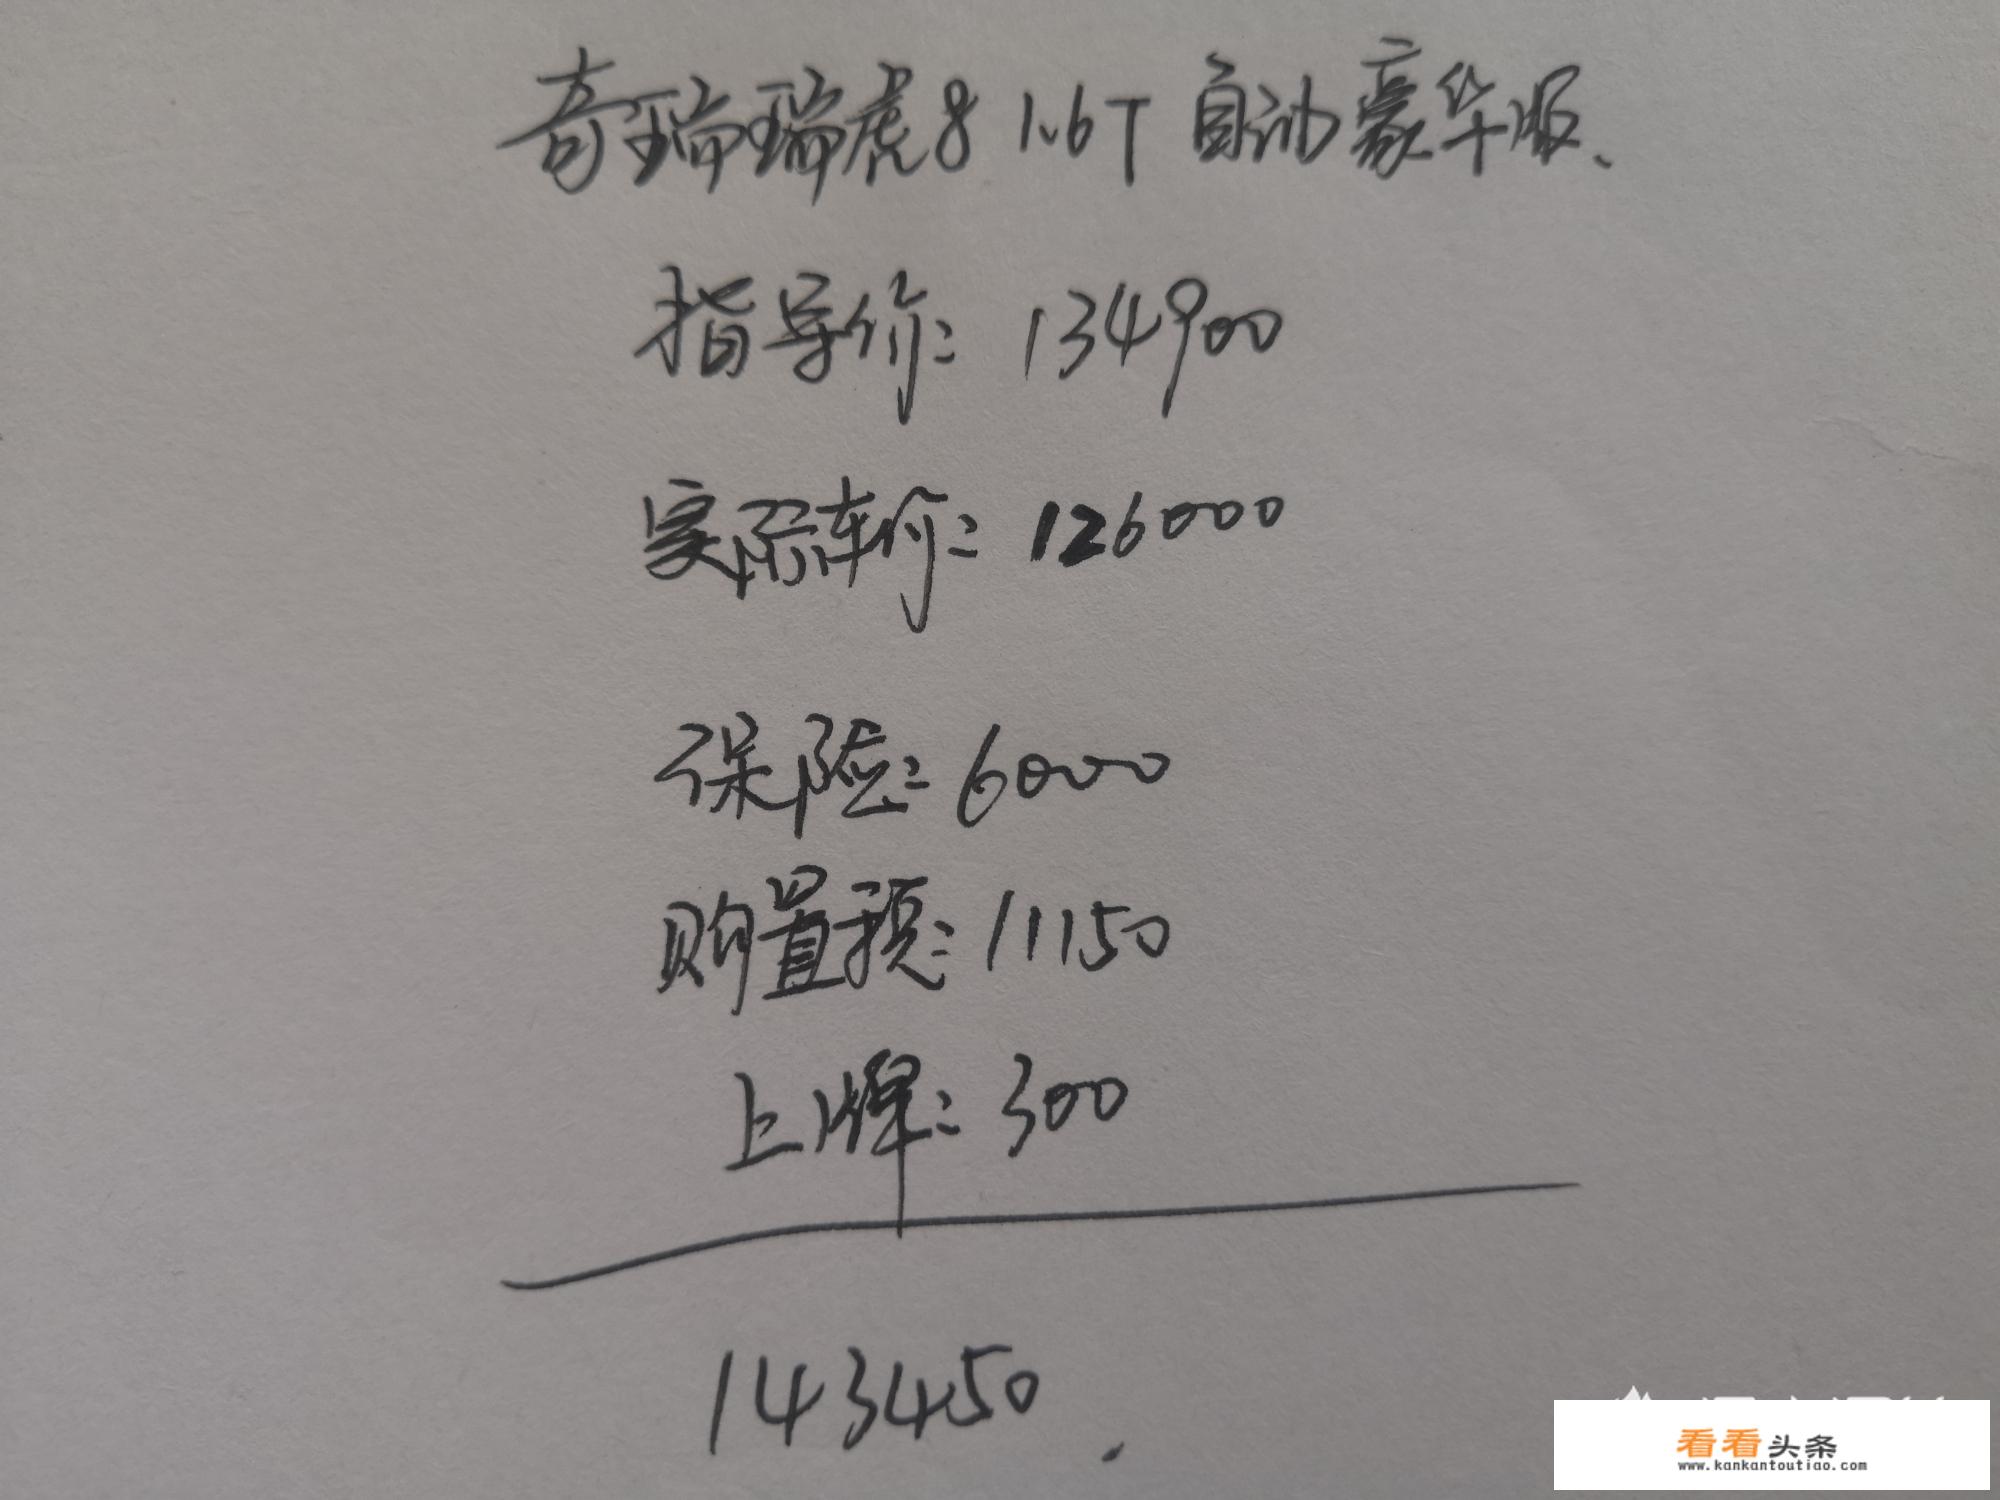 奇瑞瑞虎8 1.6T 自动豪华版.
指导价: 134900
实际车价: 126000
保险: 6000
购置税: 11150
上牌: 300
143450.
看看头条
www.kankantoutiao.com